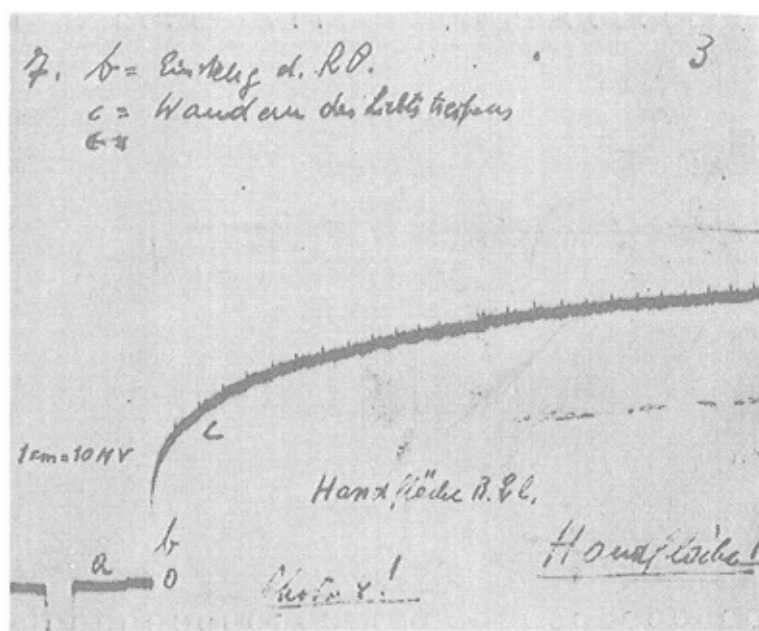 7. b = Einstellg d. R.P. 3
c = Wandern des Lichtstreifens
c
1cm=10MV
Handfläche B. L.
b
a 0
Photo 4!
Handfläche!